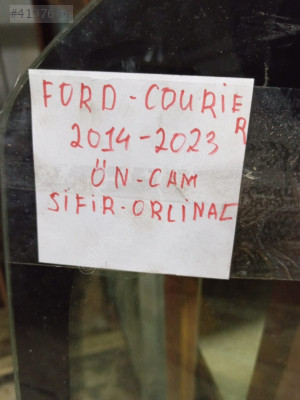 FORD-COURIER
2014-2023
ÖN-CAM
SİFİR-ORLİNAL